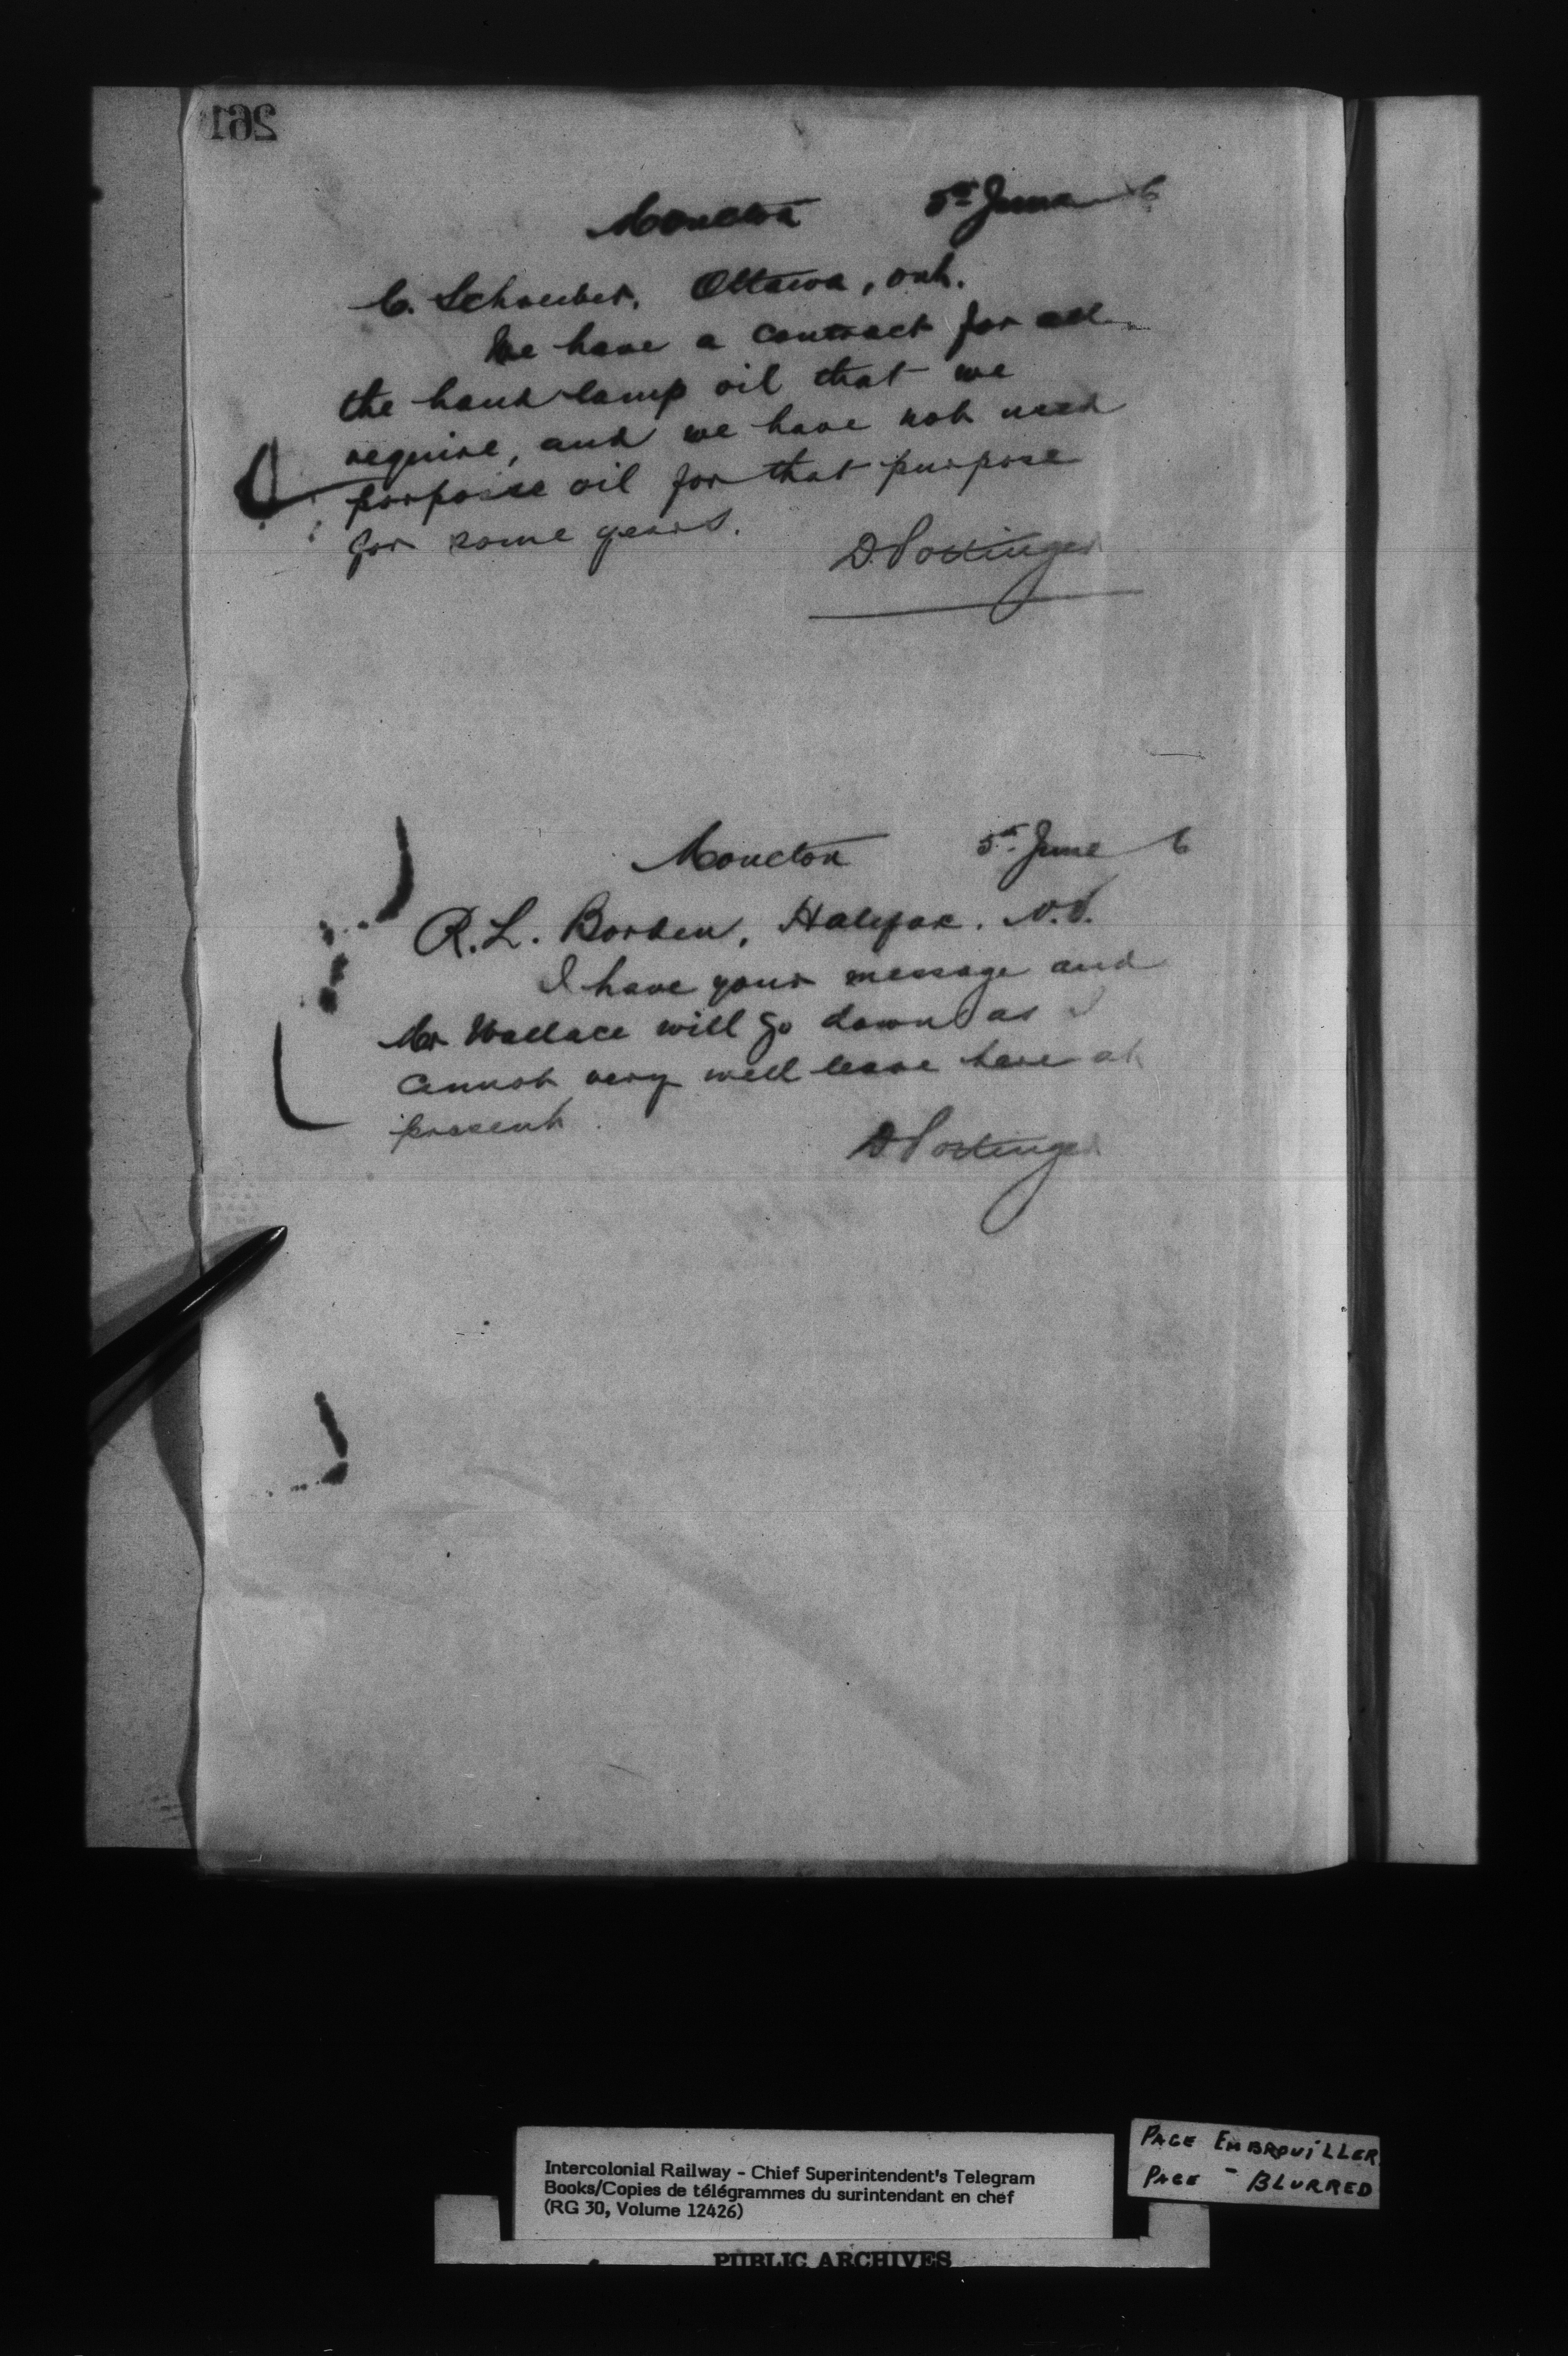 261
Moncton 5th June 6
C. Schreiber, Ottawa, Ont.
We have a contract for all
the hand lamp oil that we
require, and we have not used
porpoise oil for that purpose
for some years.
D. Pottinger
Moncton 5th June 6
R. L. Borden, Halifax. N.S.
I have your message and
Mr Wallace will go down as I
cannot very well leave here at
present.
D Pottinger
PAGE EMBROUILLER
PAGE - BLURRED
Intercolonial Railway - Chief Superintendent's Telegram
Books/Copies de télégrammes du surintendant en chef
(RG 30, Volume 12426)
PUBLIC ARCHIVES